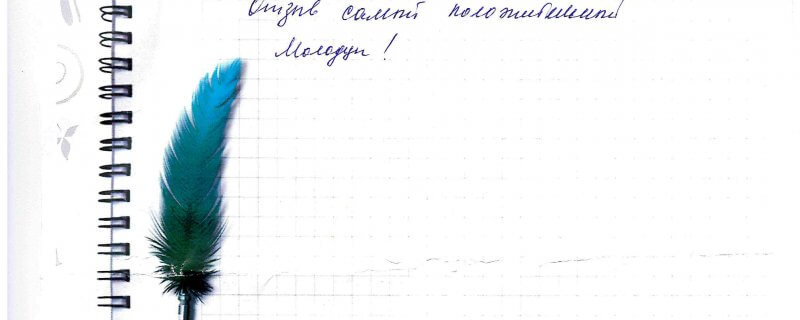 Отзыв самый положительный
Молодцы!